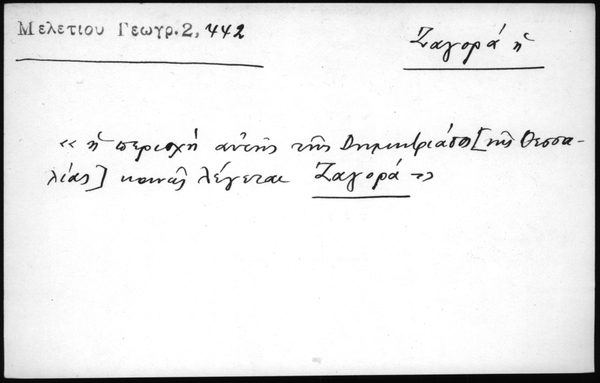 Μελετίου Γεωγρ. 2, 442
Ζαγορά ἡ
« ἡ περιοχή αὐτῆς τῆς Δημητριάδος [τῆς Θεσσα-
λίας] κοινῶς λέγεται Ζαγορά »